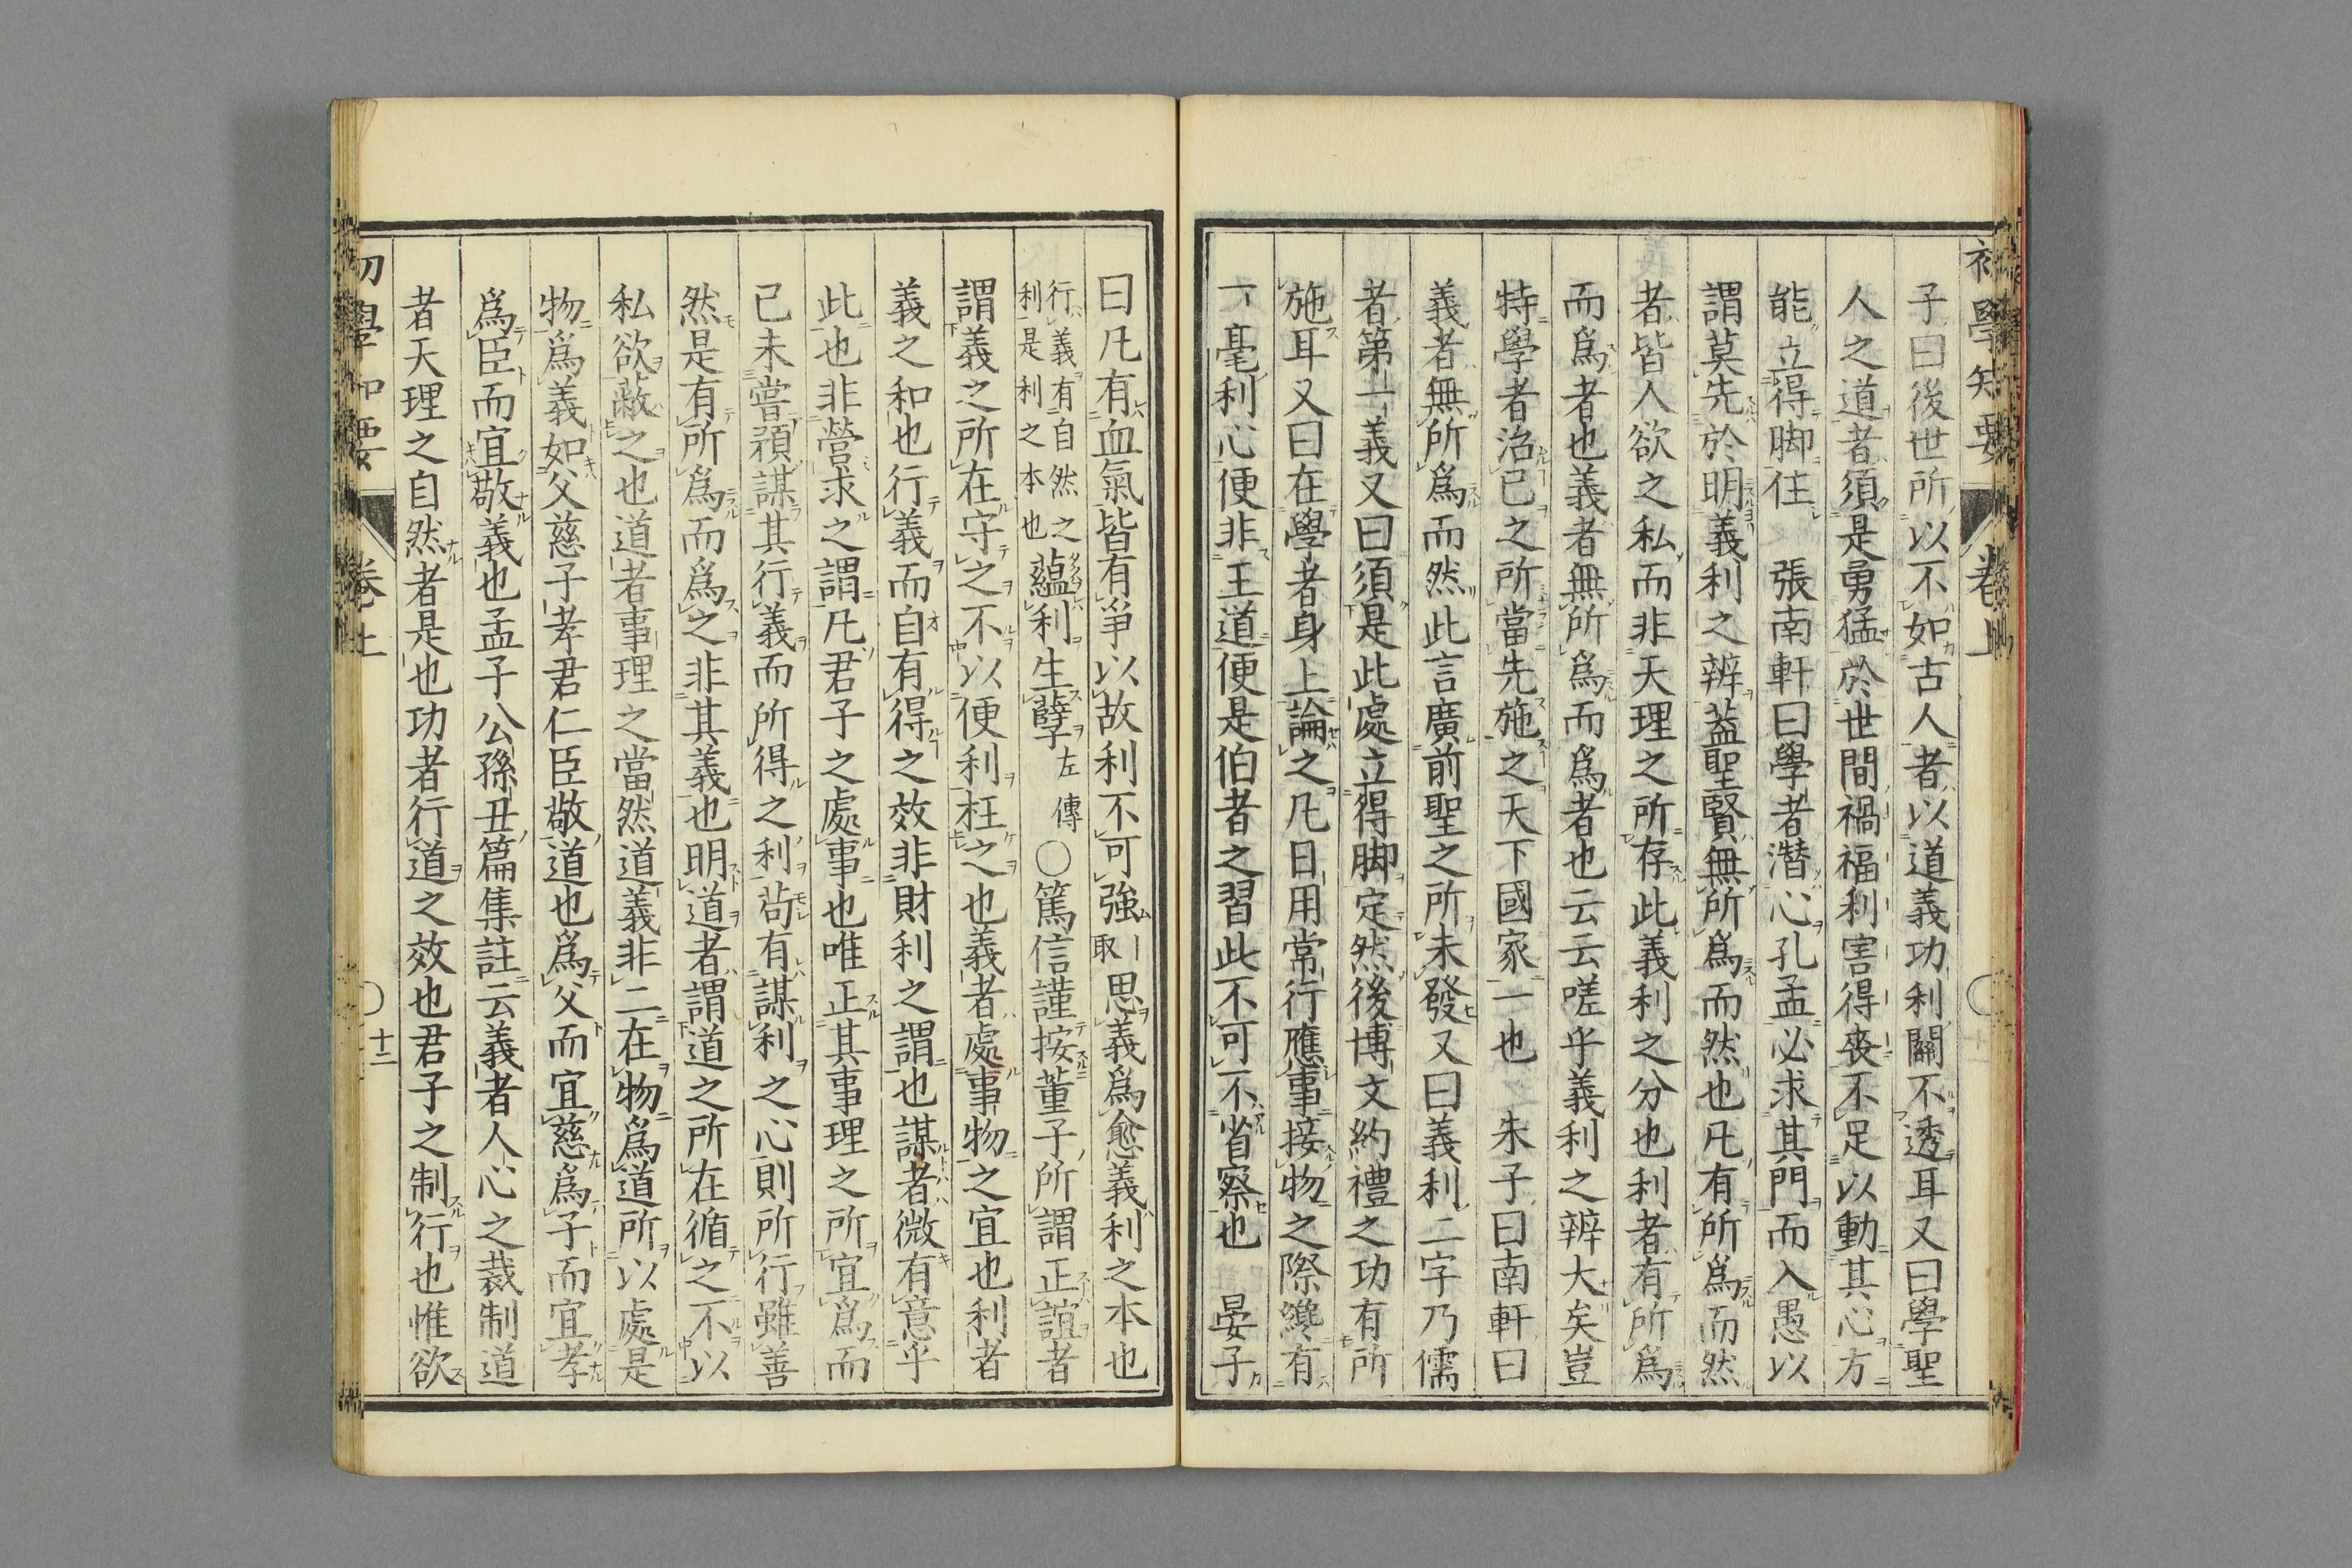 初學知要 卷上
子曰後世所以不如古人者以道義功利關不透耳又曰學聖
人之道者須是勇猛於世間禍福利害得喪不足以動其心方
能立得脚住 張南軒曰學者潜心孔孟必求其門而入愚以
謂莫先於明義利之辨蓋聖賢無所爲而然也凡有所爲而然
者皆人欲之私而非天理之所存此義利之分也利者有所爲
而爲者也義者無所爲而爲者也云云嗟乎義利之辨大矣豈
特學者治己之所當先施之天下國家一也 朱子曰南軒曰
義者無所爲而然此言廣前聖之所未發又曰義利二字乃儒
者第一義又曰須是此處立得脚定然後博文約禮之功有所
施耳又曰在學者身上論之凡日用常行應事接物之際纔有
一毫利心便非王道便是伯者之習此不可不省察也 晏子
曰凡有血氣皆有爭以故利不可強取思義爲愈義利之本也
行義有自然之利是利之本也蘊利生孽左傳○篤信謹按董子所謂正誼者
謂義之所在守之不以便利枉之也義者處事物之宜也利者
義之和也行義而自有得之效非財利之謂也謀者微有意乎
此也非營求之謂凡君子之處事也唯正其事理之所宜爲而
已未嘗預謀其行義而所得之利苟有謀利之心則所行雖善
然是有所爲而爲之非其義也明道者謂道之所在循之不以
私欲蔽之也道者事理之當然道義非二在物爲道所以處是
物爲義如父慈子孝君仁臣敬道也爲父而宜慈爲子而宜孝
爲臣而宜敬義也孟子公孫丑篇集註云義者人心之裁制道
者天理之自然者是也功者行道之效也君子之制行也惟欲
初學知要 卷上 ○ 十二